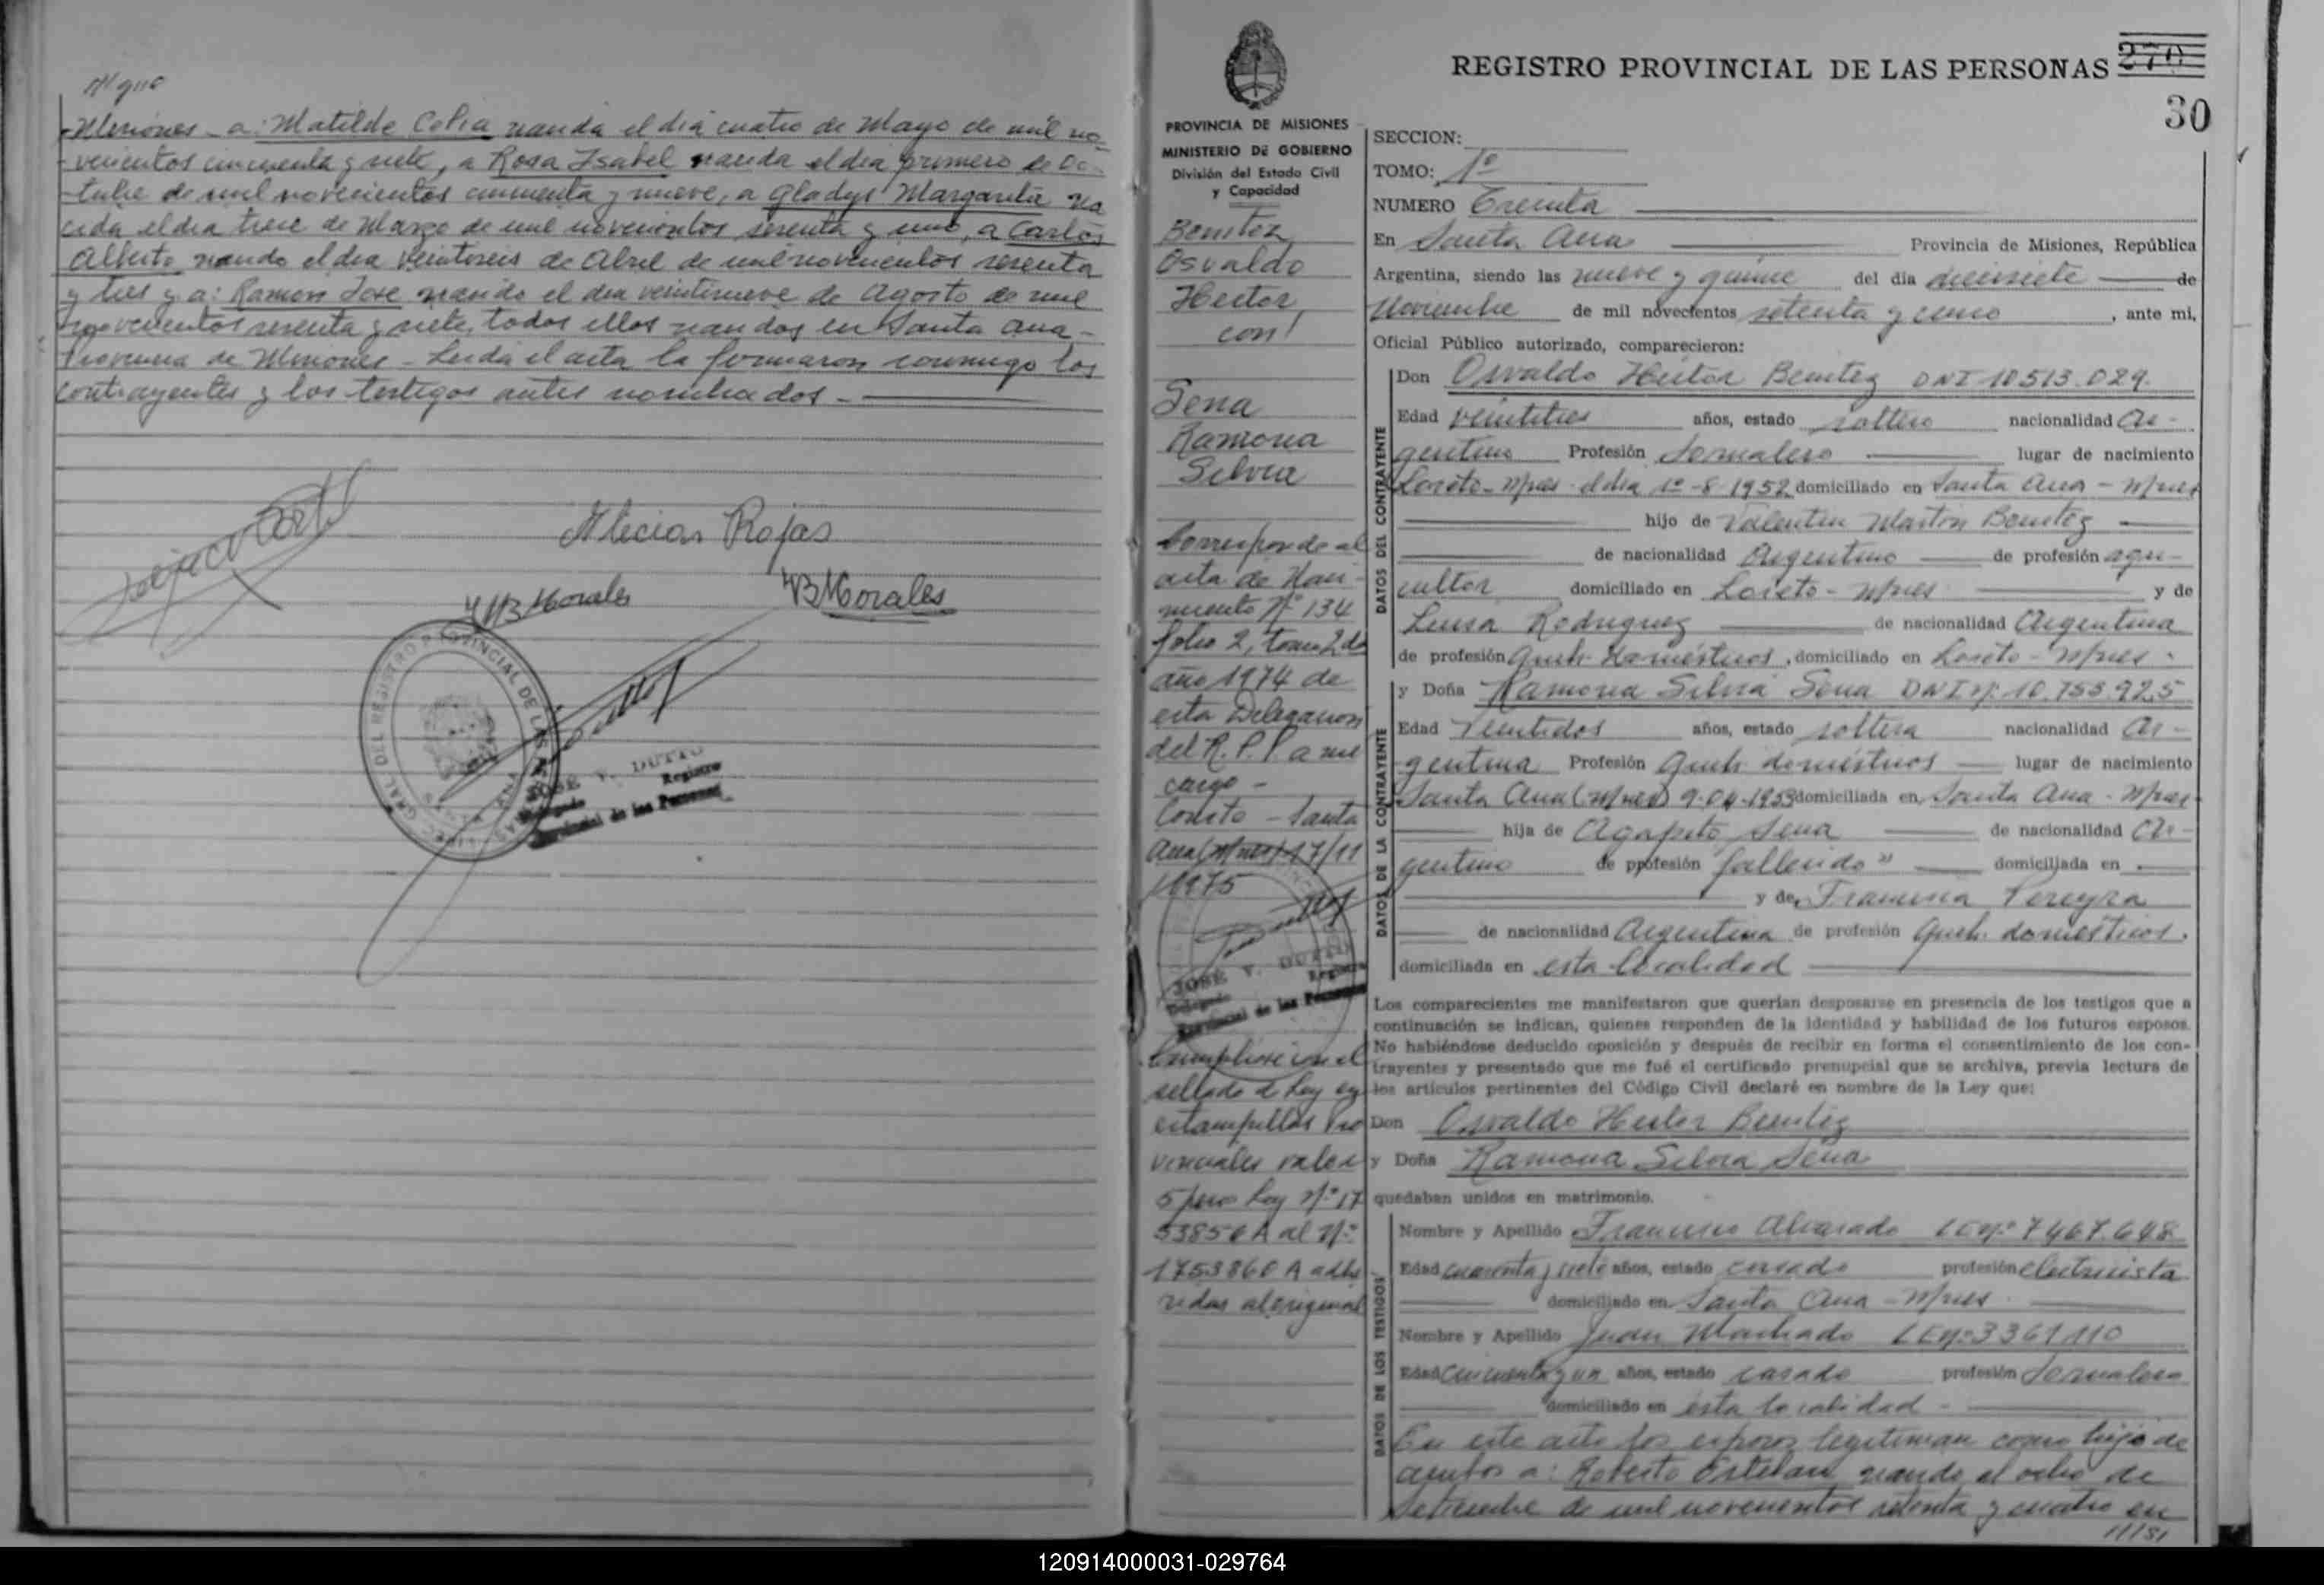 Misiones - a: Matilde Celia nacida el día cuatro de Mayo de mil no-
vecientos cincuenta y siete, a Rosa Isabel nacida el dia primero de Oc-
tubre de mil novecientos cincuenta y nueve, a Gladys Margarita na
cida el dia trece de Marzo de mil novecientos sesenta y uno, a Carlos
Alberto nacido el dia veintiseis de Abril de mil novecientos sesenta
y tres y a: Ramon Jose nacido el dia veintinueve de Agosto de mil
novecientos sesenta y siete, todos ellos nacidos en Santa Ana -
Provincia de Misiones - Leida el acta la firmaron conmigo los
contrayentes y los testigos antes nombrados -
Alecias Rojas
Morales
VBMorales
JOSE V.
Registro
Provincial de las Personas
PROVINCIA DE MISIONES
MINISTERIO DE GOBIERNO
División del Estado Civil
y Capacidad
Benitez
Osvaldo
Hector,
con!
Sena
Ramona
Silvia
Corresponde al
acta de Naci-
miento Nº 134
folio 2, tomo 2do
año 1974 de
esta Delegacion
del R. P. P a mi
cargo -
Conste - Santa
Ana (Mnes) 17/11
/1975
JOSE V.
Delegado
Registro
Provincial de las Personas
Cumplióse con el
sellado de Ley en
estampillas Pro
vinciales valor
5 peso Ley Nº 17
53856 A al Nº
1753860 A adhe
ridas al original
REGISTRO PROVINCIAL DE LAS PERSONAS 270
30
SECCION:
TOMO: 1º
NUMERO Treinta
En Santa Ana Provincia de Misiones, República
Argentina, siendo las nueve y quince del día diecisiete de
Noviembre de mil novecientos setenta y cinco, ante mi,
Oficial Público autorizado, comparecieron:
DATOS DEL CONTRAYENTE
Don Osvaldo Hector Benitez DNI 10513.029.
Edad veintitres años, estado soltero nacionalidad Ar-
gentino Profesión Jornalero lugar de nacimiento
Loreto - Mnes el dia 1º-8-1952 domiciliado en Santa Ana - Mnes
hijo de Valentin Martin Benitez
de nacionalidad Argentino de profesión agri-
cultor domiciliado en Loreto - Mnes y de
Luisa Rodriguez de nacionalidad Argentina
de profesión Queh. domésticos, domiciliado en Loreto - Mnes.
DATOS DE LA CONTRAYENTE
y Doña Ramona Silvia Sena DNI Nº 10.753.925
Edad Veintidos años, estado soltera nacionalidad Ar-
gentina Profesión Queh. domésticos lugar de nacimiento
Santa Ana (Mnes) 9-04-1953 domiciliada en Santa Ana - Mnes
hija de Agapito Sena de nacionalidad Ar-
gentino de profesión fallecido" domiciliada en
y de Francisca Pereyra
de nacionalidad Argentina de profesión Queh. domésticos.
domiciliada en esta localidad
Los comparecientes me manifestaron que querían desposarse en presencia de los testigos que a
continuación se indican, quienes responden de la identidad y habilidad de los futuros esposos.
No habiéndose deducido oposición y después de recibir en forma el consentimiento de los con-
trayentes y presentado que me fué el certificado prenupcial que se archiva, previa lectura de
los artículos pertinentes del Código Civil declaré en nombre de la Ley que:
Don Osvaldo Hector Benitez
y Doña Ramona Silvia Sena
quedaban unidos en matrimonio.
DATOS DE LOS TESTIGOS
Nombre y Apellido Francisco Alvarado LE Nº 7467.648
Edad cuarenta y siete años, estado casado profesión electricista
domiciliado en Santa Ana - Mnes
Nombre y Apellido Juan Machado LE Nº 3361110
Edad cincuenta y un años, estado casado profesión Jornalero
domiciliado en esta localidad -
En este acto los esposos legitiman como hijo de
ambos a: Roberto Esteban nacido el ocho de
Setiembre de mil novecientos setenta y cuatro en
11151
120914000031-029764